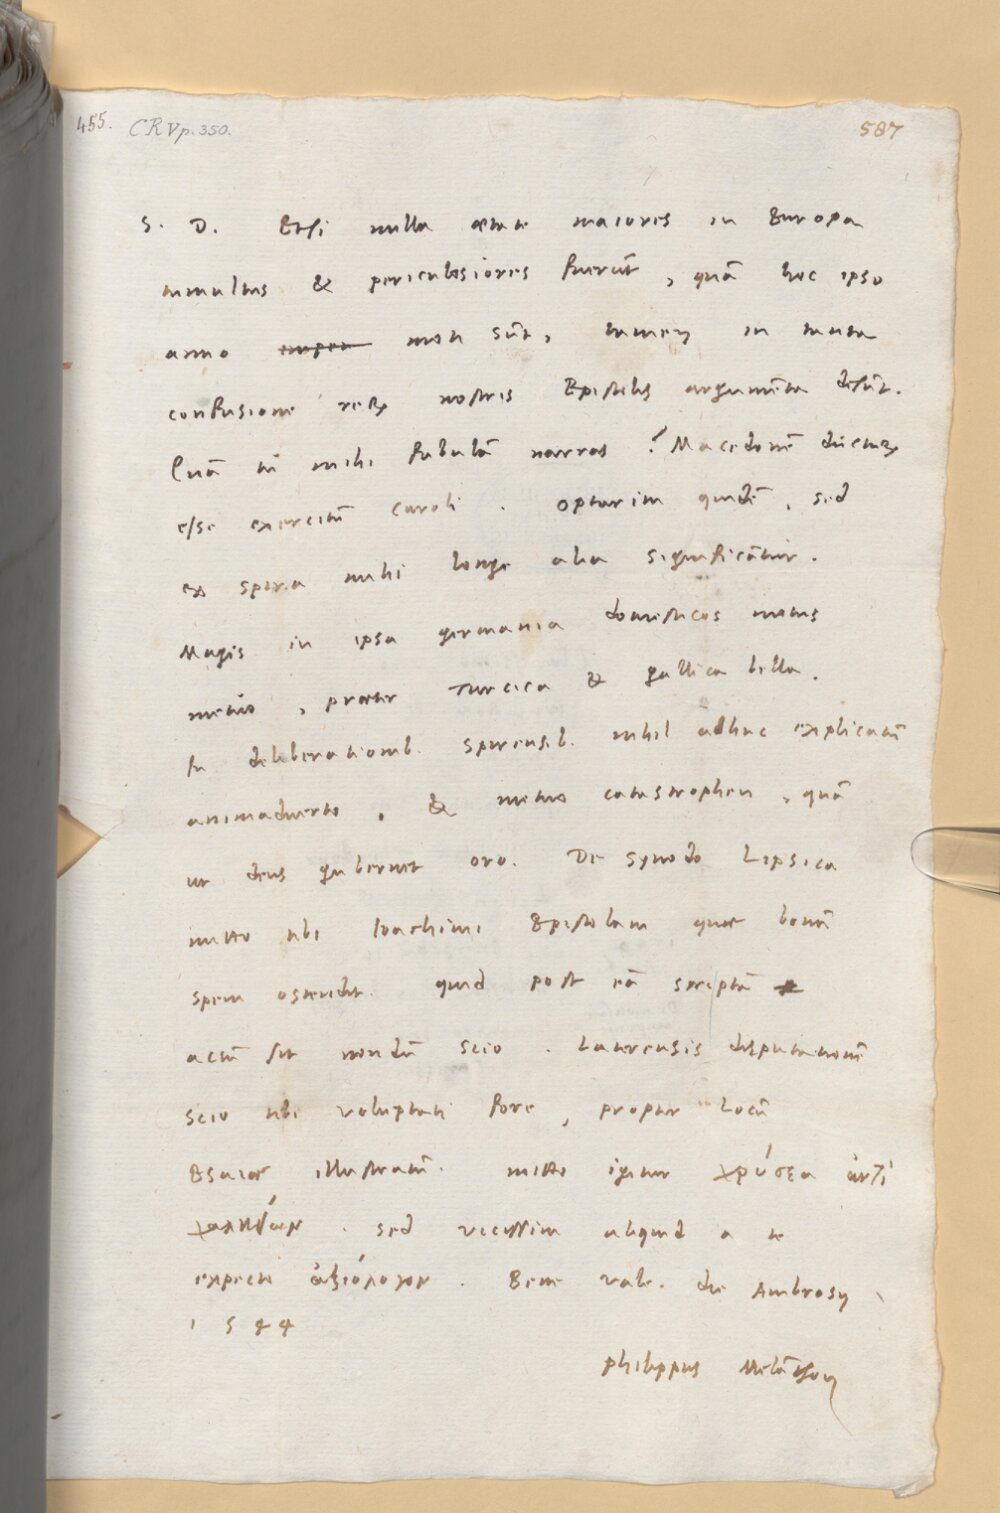 455. CR V p. 350.
587
S. D. Etsi nulla ætate maiores in Europa
tumultus & periculosiores fuerūt, quā hoc ipso
anno moti sūt, tamen in tanta
confusione rerꝝ nostris Epistolis argumēta desūt.
Quā tu mihi fabulā narras? Macedonē ductorē
esse exercitū Caroli. optarim quidē, sed
ex spira mihi longe alia significātur.
Magis in ipsa germania domesticos motus
metuo, præter Turcica & gallica bella.
In deliberationib. spirensib. nihil adhuc explicatū
animadverto, & metuo catastrophen, quā
ut deus gubernet oro. De synodo Lipsica
mitto tibi Ioachimi Epistolam quæ bonā
spem ostendit. quid post eā scriptā
actū sit nondū scio. Laterensis disputationē
scio tibi voluptati fore, propter locū
Esaiæ illustratū. mitto igitur χρύσεα ἀντὶ
χαλκείων. sed vicissim aliquid a te
expecto ἀξιόλογον. Bene vale. die Ambrosij
1544
philippus Melāthon